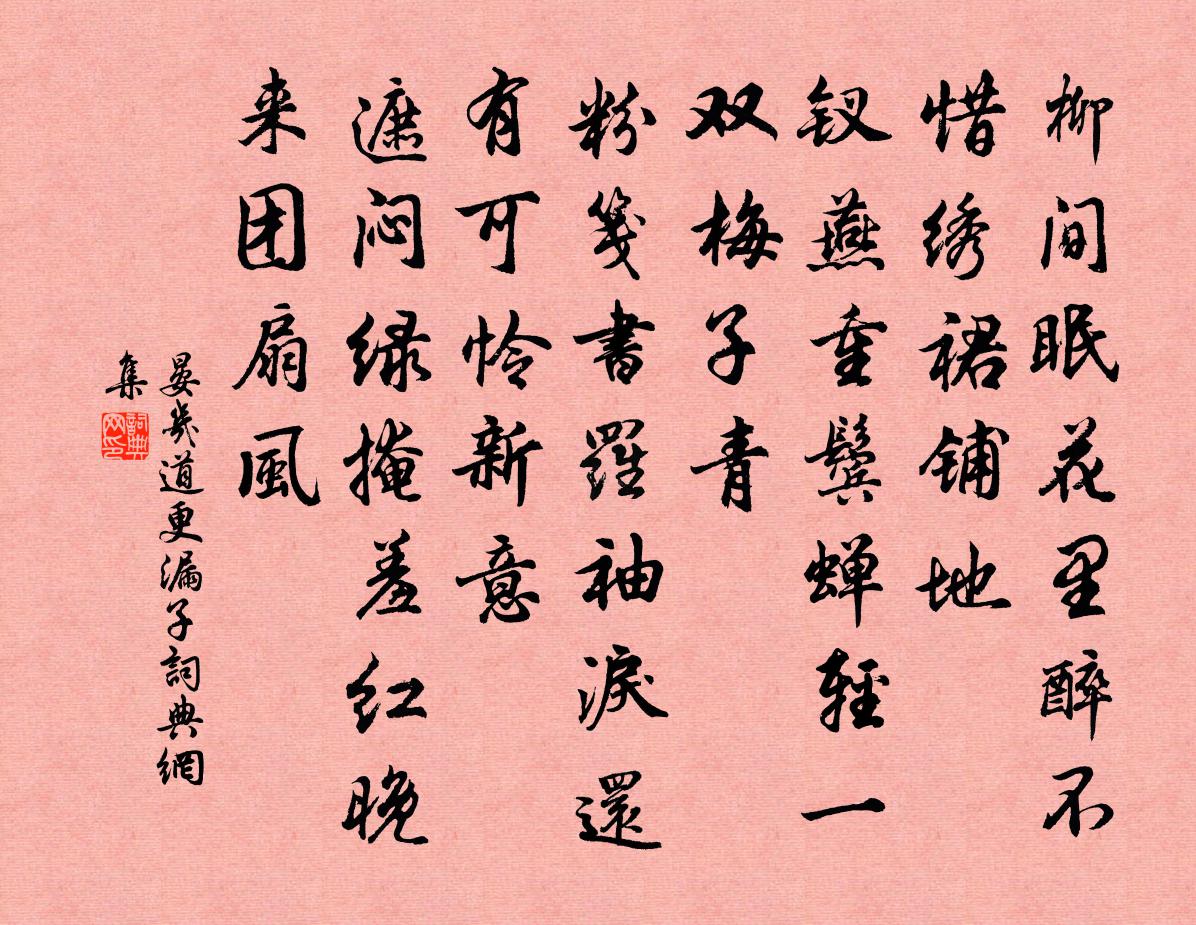 柳间眠花里醉不
惜绣裙铺地
钗燕重鬓蝉轻一
双梅子青
粉笺書羅袖淚還
有可怜新意
遮闷绿掩羞红晚
来团扇風
晏幾道更漏子詞典網
集
詞典网印